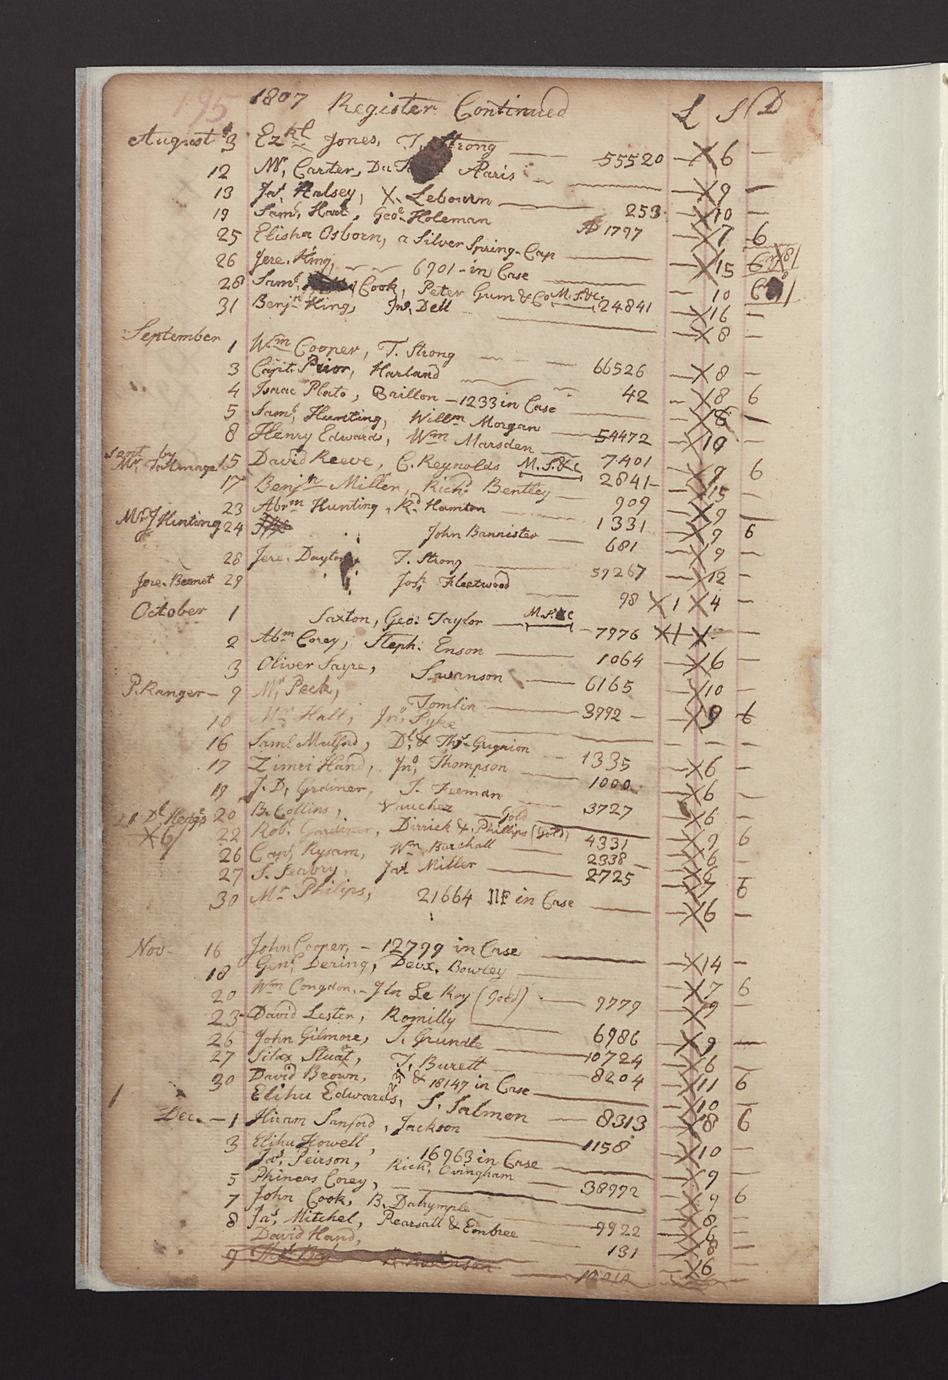 195
1807 Register Continued £ S D
August 3 Ezkl Jones, T. Strong 55520 X 6 —
12 Mr. Carter, Du Paris X 9 —
13 Jas. Halsey, X. Lebourn 253 X 10 —
19 Saml. Hart, Geoe. Holeman No 1797 X 7 6
25 Elisha Osborn, a Silver Spring-Cap X 15
26 Jere. King, 6701 - in Case 10
28 Saml. Cook, Peter Gum & Co M.S.&c 24841 X 16 —
31 Benjn. King, Jno. Dell X 8 —
September 1 Wm Cooper, T. Strong 66526 X 8 —
3 Capt. Prior, Harland 42 X 8 6
4 Isaac Plato, Brillon - 1233 in Case X 8
5 Saml. Hunting, Willm Morgan 54472 X 10
8 Henry Edwards, Wm Marsden 7401 X 9 6
Sent by Mr. Talmage 15 David Reeve, C. Reynolds M.S.&c 2841 X 15
17 Benjn Miller, Richd. Bentley 909 X 9 —
23 Abrm Hunting, Rd. Hamton 1331 X 9 6
Mr. J Hunting 24 John Bannister 681 X 9 —
28 Jere. Dayton T. Strong 59267 X 12 —
Jere. Bennet 29 Josh. Fleetwood 98 X 1 X 4 —
October 1 Saxton, Geo: Taylor M.S.&c 7976 X 1 X —
2 Abm Corey, Steph. Enson 1064 X 6 —
3 Oliver Sayre, Swanson 6165 X 10 —
P. Ranger 9 Mr. Peck, Tomlin 3992 X 9 6
10 Mr. Halt, Jno. Pyke — —
16 Saml. Mulford, Dl. & Ths. Grignion 1335 X 6 —
17 Zimri Hand, Jno. Thompson 1000 X 6 —
19 J. D. Gardiner, J. Freeman 3727 X 6 —
Dl. Hedges X 6/ 20 B. Collins, Vaucher Gold X 9 6
22 Robt. Gardiner, Dirrick & Phillips (Gold) 4331 X 6 —
26 Capt. Rysam, Wm Barshall 2338 X 6 —
27 S. Seabry, Jas. Miller 2725 X 7 6
30 Mr. Philips, 21664 NF in Case X 6 —
Nov- 16 John Cooper, - 12799 in Case X 14 —
18 Genl. Dering, Deux. Bowley X 7 6
20 Wm Congdon, - Jln Le Roy (Gold) 9779 X 9
23 David Lester, Romilly 6986 X 9 —
26 John Gilmore, J. Grundle 10724 X 6
27 Silas Stuat, T. Burett 8204 X 11 6
30 David Brown, 18147 in Case X 10 —
Elihu Edwards, S. Salmon 8313 X 8 6
Dec. 1 Hiram Sanford, Jackson 1158 X 10 —
3 Elihu Howell, 16963 in Case X 9 —
Jas. Peirson, Richd. Ovingham 38992 X 9 6
5 Phineas Corey, X 8 —
7 John Cook, B. Dahymple 9922 X 6 —
8 Jas. Mitchel, Pearsall & Embree 131 X 8 —
David Hand, X 6 —
9